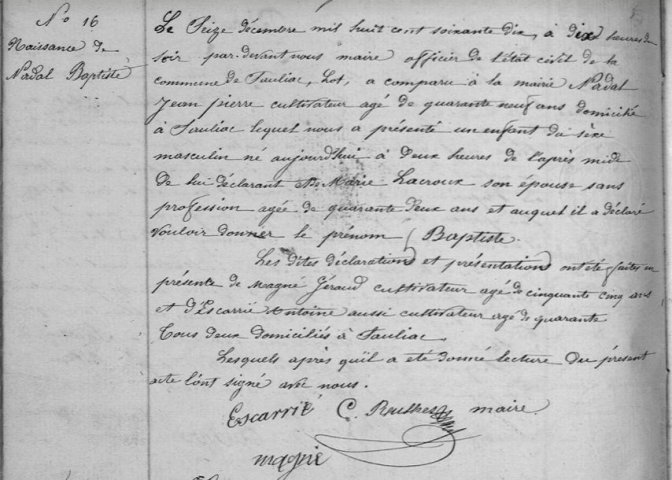 N° 16
Naissance de
Nadal Baptiste
Le Seize décembre mil huit cent soixante dix, à dix heures du
soir par-devant nous maire officier de l'état civil de la
commune de Sauliac, Lot, a comparu à la mairie Nadal
Jean pierre cultivateur agé de quarante neuf ans domicilié
à Sauliac lequel nous a présenté un enfant du sèxe
masculin né aujourd'hui à deux heures de l'après midi
de lui déclarant et de Marie Lacroux son épouse sans
profession agée de quarante deux ans et auquel il a déclaré
vouloir donner le prénom Baptiste.
Les dites déclarations et présentations ont été faites en
présente de Magné Géraud cultivateur agé de cinquante cinq ans
et d'Escarrié Antoine aussi cultivateur agé de quarante
Tous deux domiciliés à Sauliac.
Lesquels après qu'il a été donné lecture du présent
acte l'ont signé avec nous.
Escarrié C. maire
magnie